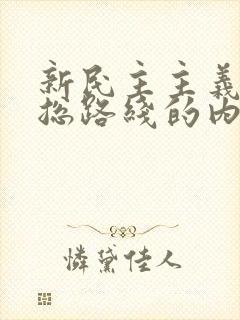 新民主主義
总路綫的内
憐黛佳人